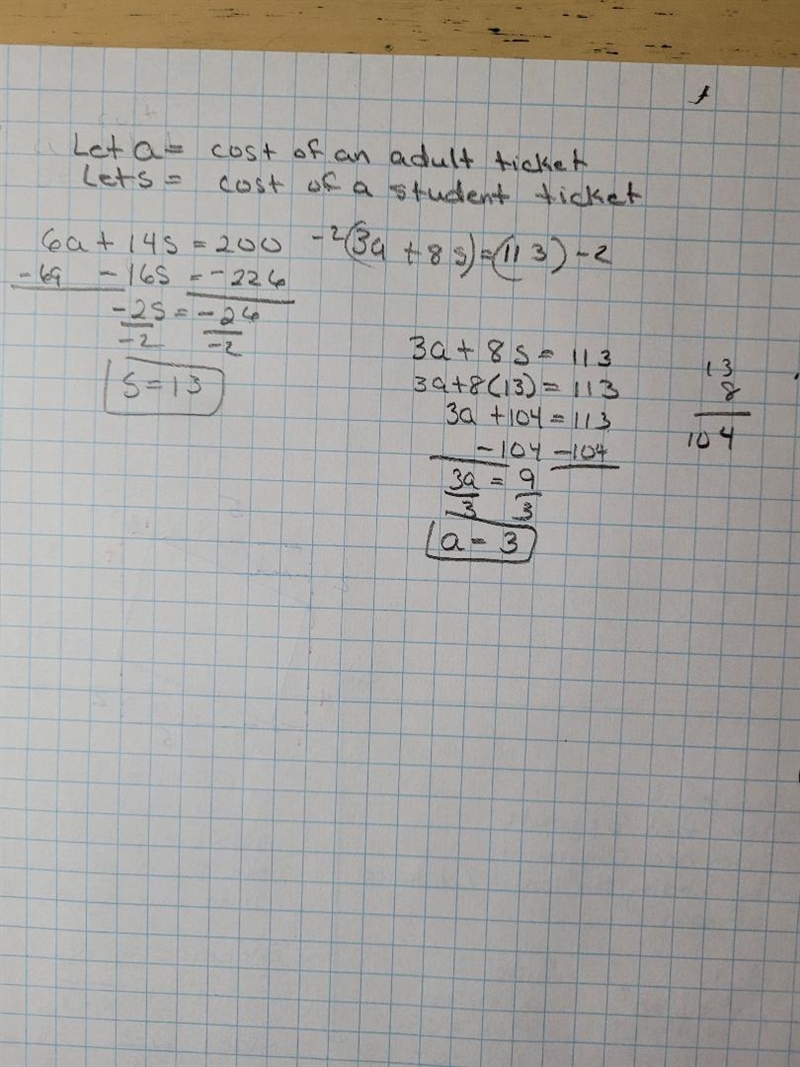 Let a = cost of an adult ticket
Let s = cost of a student ticket
6a + 14s = 200
-6a -16s = -226
-2s = -26
-2 -2
s = 13
-2(3a + 8s) = (113) -2
3a + 8s = 113
3a + 8(13) = 113
3a + 104 = 113
-104 -104
3a = 9
3 3
a = 3
13
8
104